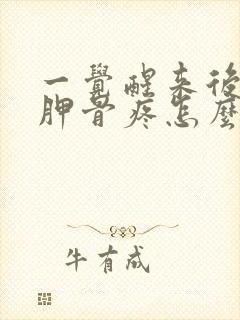 一覺醒來後
胛骨疼怎麼
牛有成